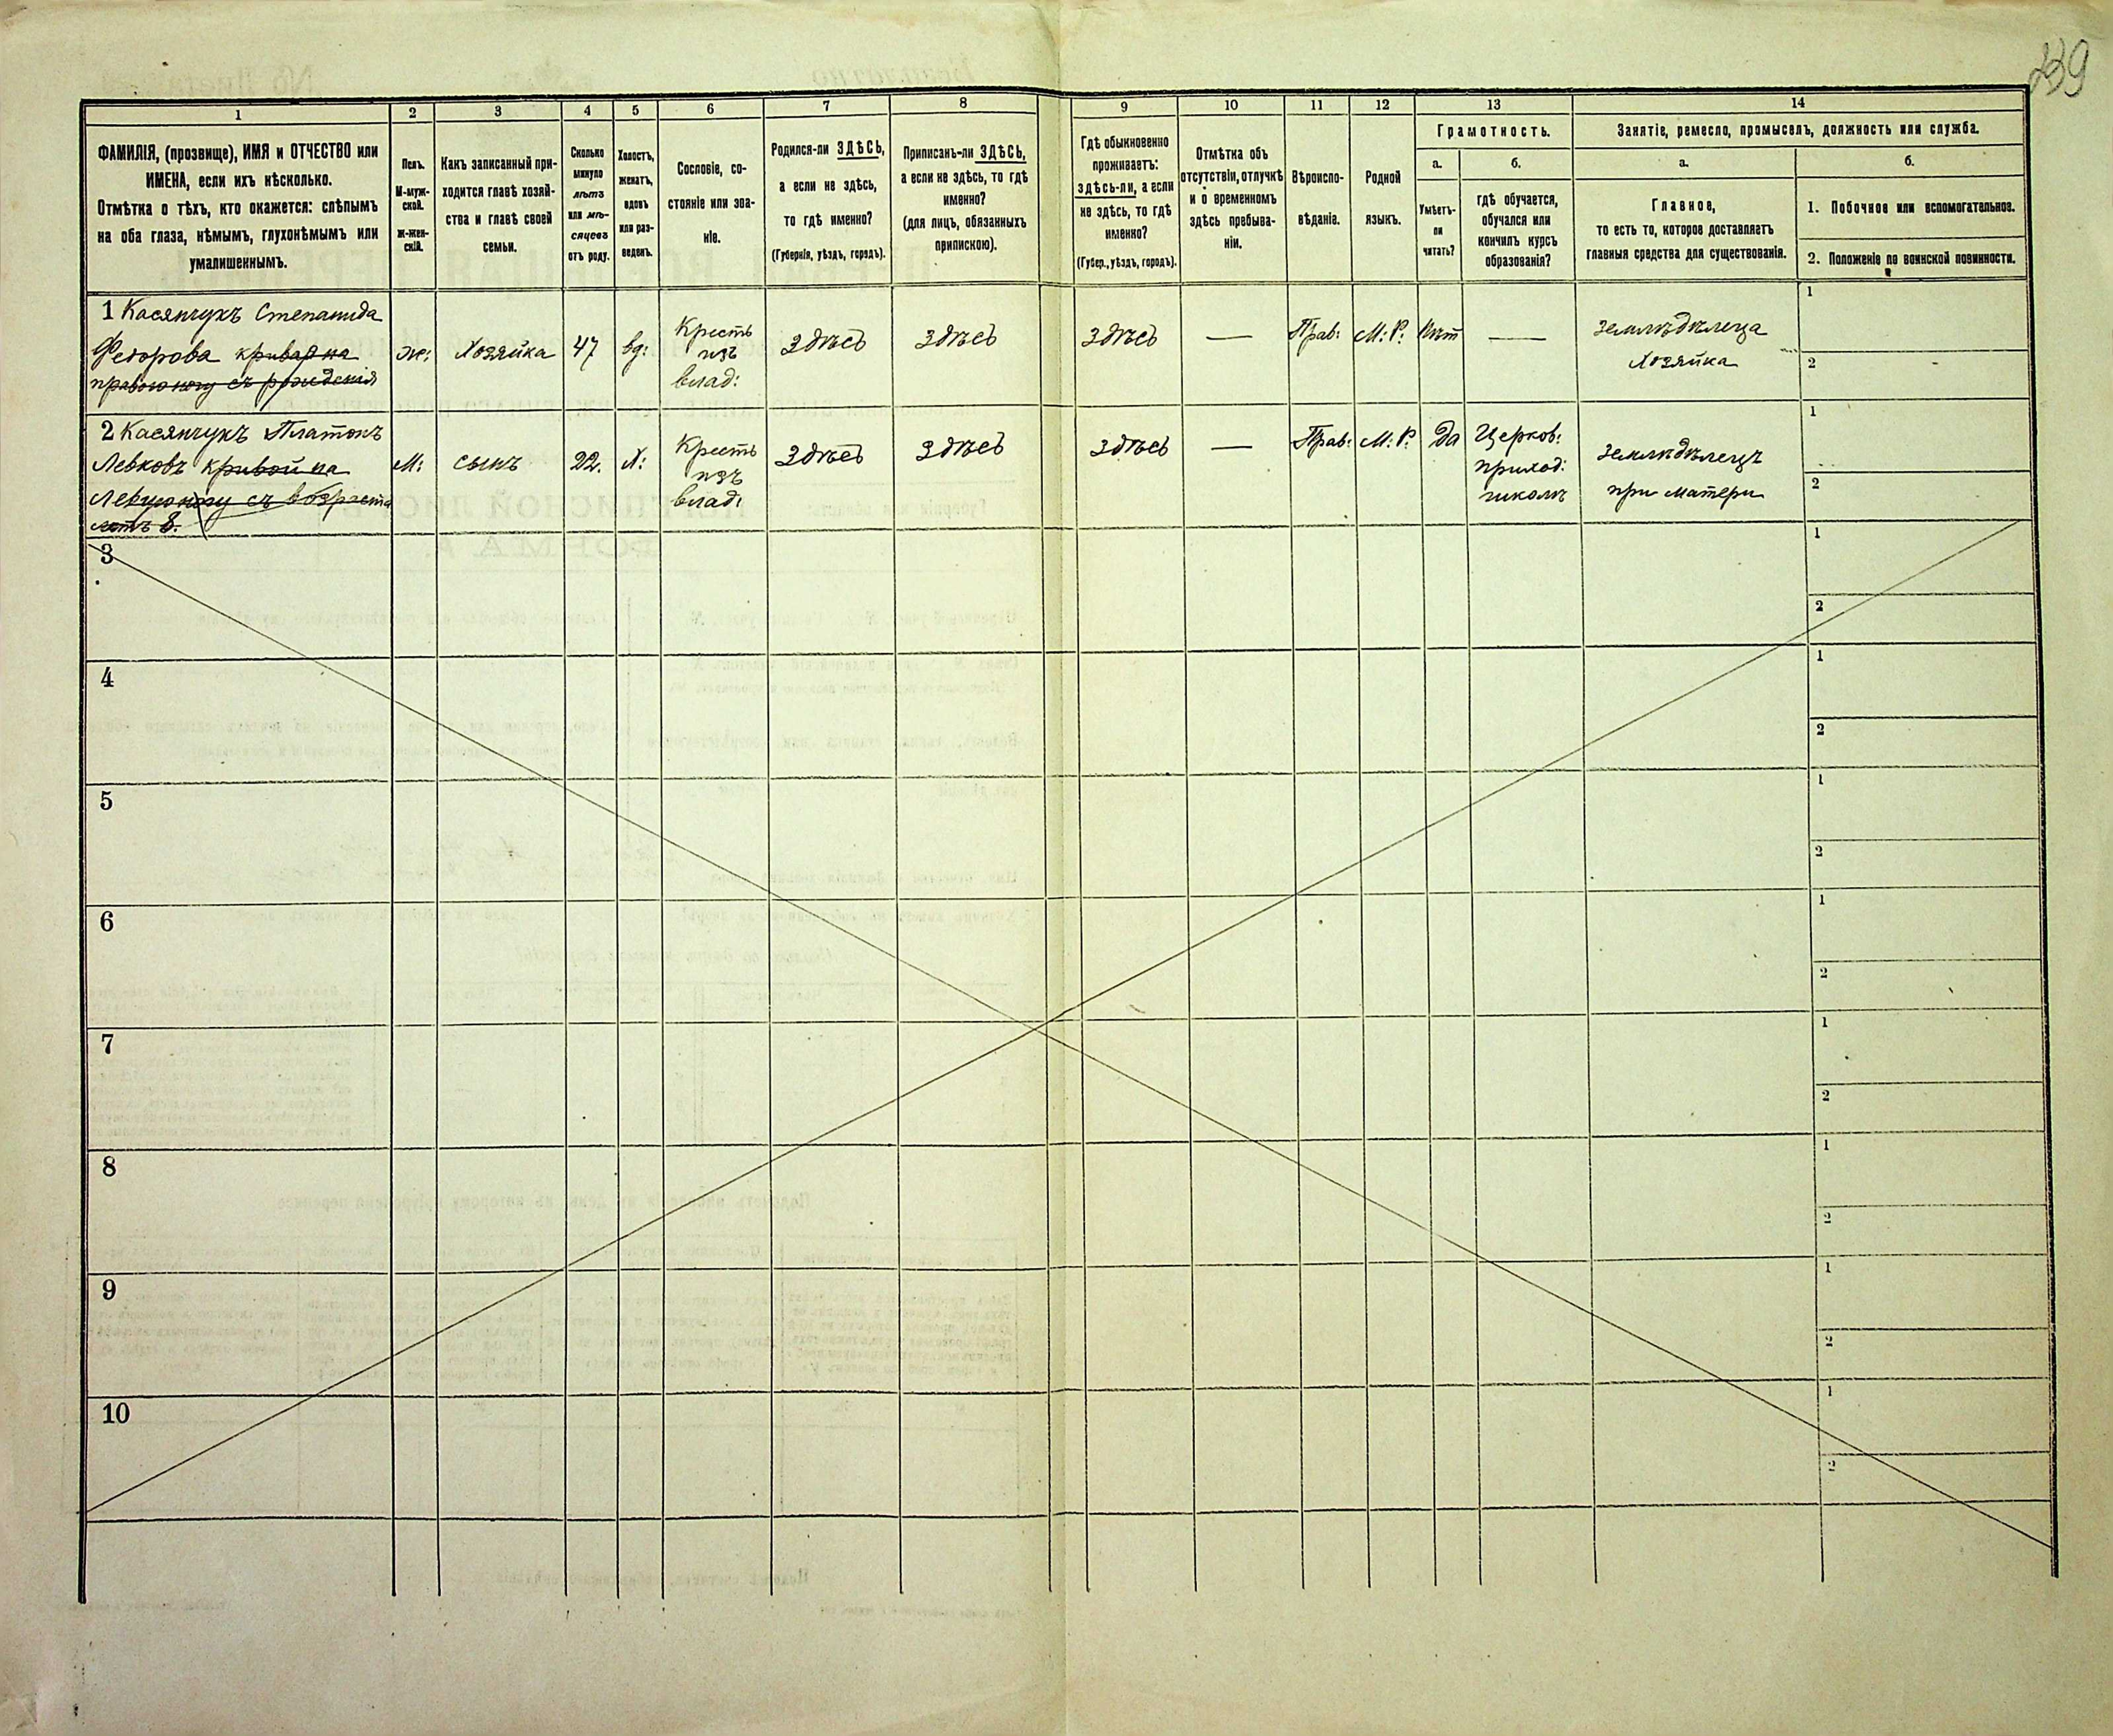 239
1
2
3
4
5
6
7
8
9
10
11
12
13
14
ФАМИЛІЯ, (прозвище), ИМЯ и ОТЧЕСТВО или
ИМЕНА, если ихъ нѣсколько.
Отмѣтка о тѣхъ, кто окажется: слѣпымъ
на оба глаза, нѣмымъ, глухонѣмымъ или
умалишеннымъ.
Полъ.
М-муж-
ской.
ж-жен-
скій.
Какъ записанный при-
ходится главѣ хозяй-
ства и главѣ своей
семьи.
Сколько
минуло
лѣтъ
или мѣ-
сяцевъ
отъ роду.
Холостъ,
женатъ,
вдовъ
или раз-
веденъ.
Сословіе, со-
стояніе или зва-
ніе.
Родился-ли ЗДѢСЬ,
а если не здѣсь,
то гдѣ именно?
(Губернія, уѣздъ, городъ).
Приписанъ-ли ЗДѢСЬ,
а если не здѣсь, то гдѣ
именно?
(для лицъ, обязанныхъ
припискою).
Гдѣ обыкновенно
проживаетъ:
здѣсь-ли, а если
не здѣсь, то гдѣ
именно?
(Губер., уѣздъ, городъ).
Отмѣтка объ
отсутствіи, отлучкѣ
и о временномъ
здѣсь пребыва-
ніи.
Вѣроиспо-
вѣданіе.
Родной
языкъ.
Грамотность.
а.
Умѣетъ-
ли
читать?
б.
гдѣ обучается,
обучался или
кончилъ курсъ
образованія?
Занятіе, ремесло, промыселъ, должность или служба.
а.
Главное,
то есть то, которое доставляетъ
главныя средства для существованія.
б.
1. Побочное или вспомогательное.
2. Положеніе по воинской повинности.
1 Касянчукъ Степанида
Федорова кривая на
правою ногу съ рожденія
ж:
Хозяйка
47
вд:
Кресть
изъ
влад:
Здѣсь
Здѣсь
Здѣсь
—
Прав:
М: Р:
Нѣт
—
Земледѣлеца
Хозяйка
1
2
2 Касянчукъ Платонъ
Левковъ кривой на
Левую ногу съ возраста
летъ 8.
М:
сынъ
22.
Х:
Кресть
изъ
влад:
Здѣсь
Здѣсь
Здѣсь
—
Прав:
М: Р:
Да
Церков:
приход:
школѣ
Земледѣлецъ
при матери
1
2
3
1
2
4
1
2
5
1
2
6
1
2
7
1
2
8
1
2
9
1
2
10
1
2